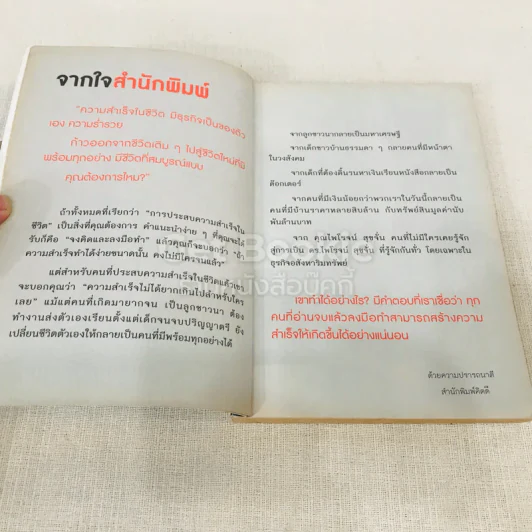 จากใจสำนักพิมพ์
"ความสำเร็จในชีวิต มีธุรกิจเป็นของตัว
เอง ความร่ำรวย
ก้าวออกจากชีวิตเดิม ๆ ไปสู่ชีวิตใหม่ที่มี
พร้อมทุกอย่าง มีชีวิตที่สมบูรณ์แบบ
คุณต้องการไหม?"
ถ้าทั้งหมดที่เรียกว่า "การประสบความสำเร็จใน
ชีวิต" เป็นสิ่งที่คุณต้องการ คำแนะนำง่าย ๆ ที่คุณจะได้
รับก็คือ "จงคิดและลงมือทำ" แล้วคุณก็จะบอกว่า "ถ้า
ความสำเร็จทำได้ง่ายขนาดนั้น คงไม่มีใครจนแล้ว"
แต่สำหรับคนที่ประสบความสำเร็จในชีวิตแล้วเขา
จะบอกคุณว่า "ความสำเร็จไม่ได้ยากเกินไปสำหรับใคร
เลย" แม้แต่คนที่เกิดมายากจน เป็นลูกชาวนา ต้อง
ทำงานส่งตัวเองเรียนตั้งแต่เด็กจนจบปริญญาตรี ยัง
เปลี่ยนชีวิตตัวเองให้กลายเป็นคนที่มีพร้อมทุกอย่างได้
จากลูกชาวนากลายเป็นมหาเศรษฐี
จากเด็กชาวบ้านธรรมดา ๆ กลายคนที่มีหน้าตา
ในวงสังคม
จากเด็กที่ต้องดิ้นรนหาเงินเรียนหนังสือกลายเป็น
ด๊อกเตอร์
จากคนที่มีเงินน้อยกว่าพวกเราในวันนี้กลายเป็น
คนที่มีบ้านราคาหลายสิบล้าน กับทรัพย์สินมูลค่านับ
พันล้านบาท
จาก คุณไพโรจน์ สุขจั่น คนที่ไม่มีใครเคยรู้จัก
สู่การเป็น ดร.ไพโรจน์ สุขจั่น ที่รู้จักกันทั่ว โดยเฉพาะใน
ธุรกิจอสังหาริมทรัพย์
เขาทำได้อย่างไร? มีคำตอบที่เราเชื่อว่า ทุก
คนที่อ่านจบแล้วลงมือทำสามารถสร้างความ
สำเร็จให้เกิดขึ้นได้อย่างแน่นอน
ด้วยความปรารถนาดี
สำนักพิมพ์คิดดี